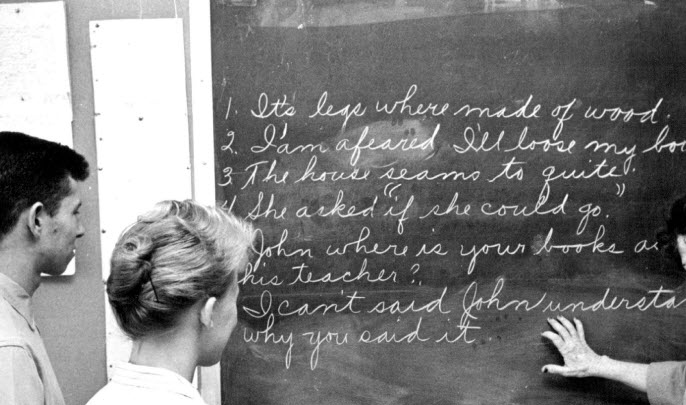 1. It's legs where made of wood.
2. I'am afeared I'll loose my
3. The house seams to quite.
4. She asked "if she could go."
John where is your books
his teacher?
I can't said John
why you said it